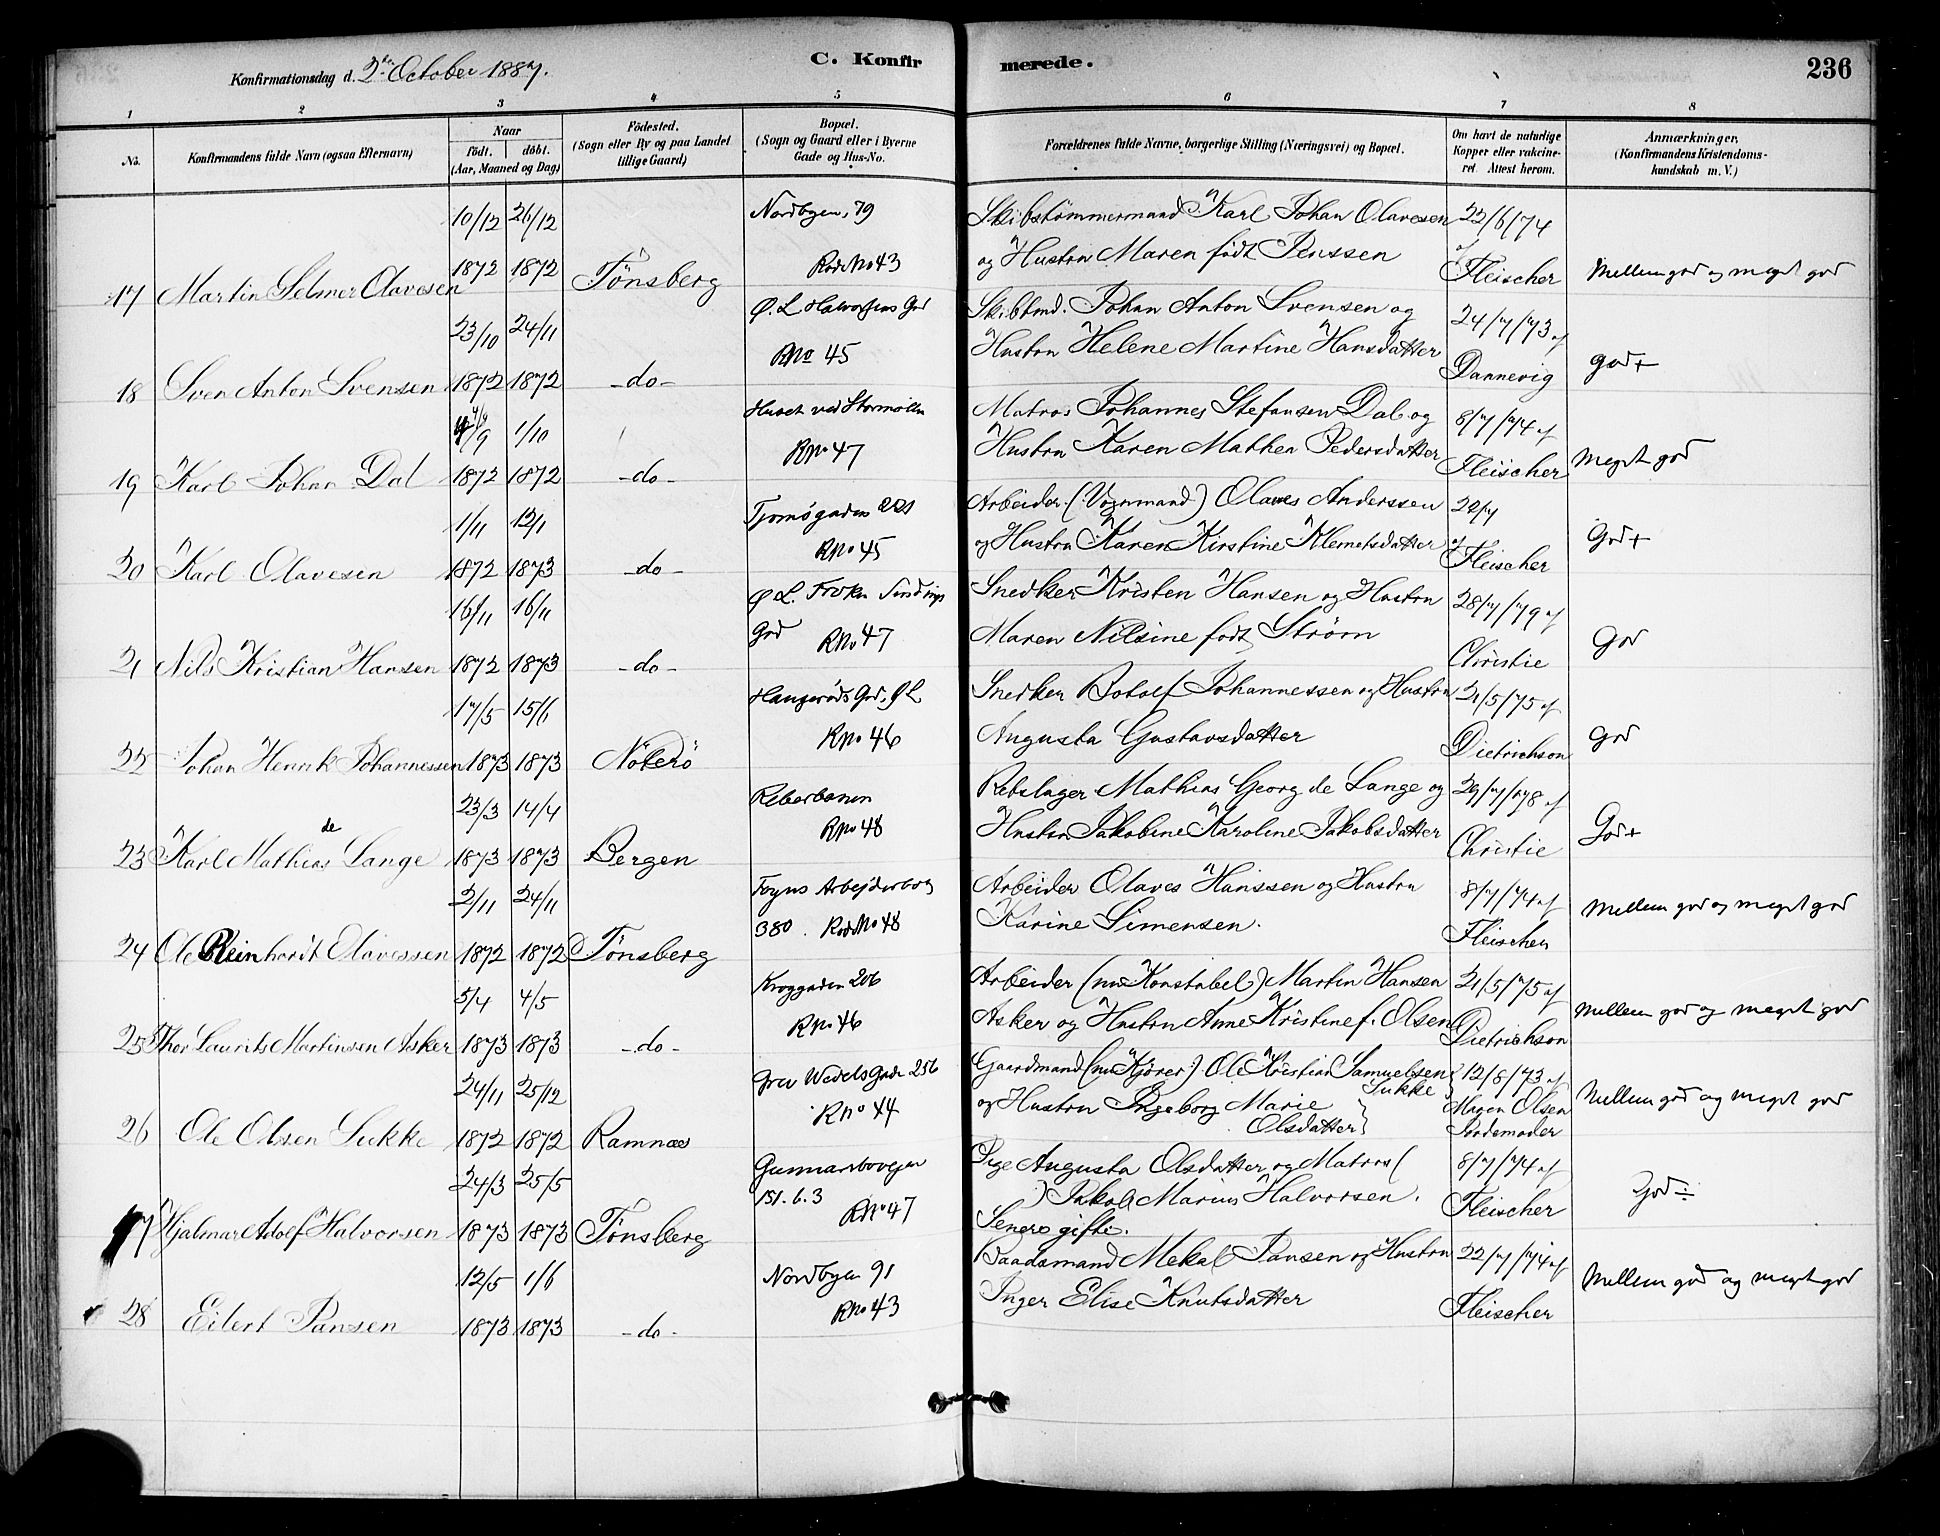 Konfirmationsdag d. 2den October 1887.
C. Konfirmerede.
236
1 2 3 4 5 6 7 8
No.
Konfirmandens fulde Navn (ogsaa Efternavn)
Naar født. døbt. (Aar, Maaned og Dag)
Fødested. (Sogn eller By og paa Landet tillige Gaard)
Bopæl. (Sogn og Gaard eller i Byerne Gade og Hus-No.
Forældrenes fulde Navne, borgerlige Stilling (Næringsvei) og Bopæl.
Om havt de naturlige Kopper eller vakcineret. Attest herom.
Anmærkninger, (Konfirmandens Kristendomskundskab m. V.)
10/12 26/12 Nordbyen, 79 Skibstømmermand Karl Johan Olavesen 22/6/74
og Hustru Maren født Jenssen af
17 Martin Selmer Olavesen 1872 1872 Tønsberg Rode No 43 Fleischer Mellem god og meget god
23/10 24/11 Ø. L. Halvorsens Grd Skibtmd. Johan Anton Svensen og 24/7/73 af
18 Sven Anton Svensen 1872 1872 -do- RNo 45 Hustru Helene Martine Hansdatter Dannevig God+
4/9 1/10 Huset ved Stormøllen Matros Johannes Stefansen Dal og 8/7/74 af
19 Karl Johan Dal 1872 1872 -do- RNo 47 Hustru Karen Mathea Pedersdatter Fleischer Meget god
1/11 12/1 Tjømøgaden 221 Arbeider (Vognmand) Olaves Anderssen 22/7
20 Karl Olavesen 1872 1873 -do- RNo 45 og Hustru Karen Kirstine Klemetsdatter af Fleischer God+
16/11 16/11 Ø L. Frøken Sindings Grd Snedker Kristen Hansen og Hustru 28/7/79 af
21 Nils Kristian Hansen 1872 1873 -do- RNo 47 Maren Nilsine født Strøm Christie God
17/5 15/6 Haugerøds Grd. Ø L Snedker Botolf Johannessen og Hustru 21/5/75 af
22 Johan Henrik Johannessen 1873 1873 Nøterø RNo 46 Augusta Gustavsdatter Dietrichson God
23/3 14/4 Reberbanen Rebslager Mathias Georg de Lange og 29/7/78 af
23 Karl Mathias de Lange 1873 1873 Bergen RNo 48 Hustru Jakobine Karoline Jakobsdatter Christie God+
2/11 24/11 Foyns Arbejderbolig Arbeider Olaves Hanssen og Hustru 8/7/74 af
24 Ole Reinhardt Olavessen 1872 1872 Tønsberg 380. Rode No 48 Karine Simensen. Fleischer Mellem god og meget god
5/4 4/5 Kroggaden 206 Arbeider (nu Konstabel) Martin Hansen 21/5/75 af
25 Thor Laurits Martinsen Asker 1873 1873 -do- RNo 46 Asker og Hustru Anne Kristine f. Olsen Dietrichson Mellem god og meget god
24/11 25/12 Grev Wedels Gade 256 Gaardmand (nu Kjører) Ole Kristian Samuelsen Sukke 12/6/73 af
26 Ole Olsen Sukke 1872 1872 Ramnæs RNo 44 og Hustru Ingeborg Marie Olsdatter Maren Olsen Jordemoder Mellem god og meget god
24/3 25/5 Gunnarsbovejen Pige Augusta Olsdatter og Matros ( 8/7/74 af
151. 6. 3 ) Jakob Marius Halvorsen.
27 Hjalmar Adolf Halvorsen 1873 1873 Tønsberg RNo 47 Senere gifte. Fleischer God÷
12/5 1/6 Nordbyen 91 Baadsmand Mekal Jansen og Hustru 22/7/74 af
28 Eilert Jansen 1873 1873 -do- RNo 43 Inger Elise Knutsdatter Fleischer Mellem god og meget god